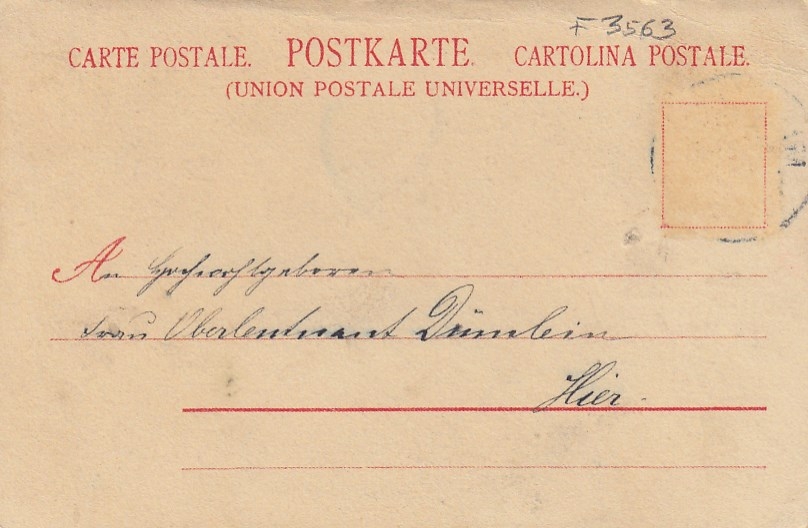 F 3563
CARTE POSTALE. POSTKARTE. CARTOLINA POSTALE.
(UNION POSTALE UNIVERSELLE.)
An Hochwohlgeboren
Frau Oberleutnant
Hier.